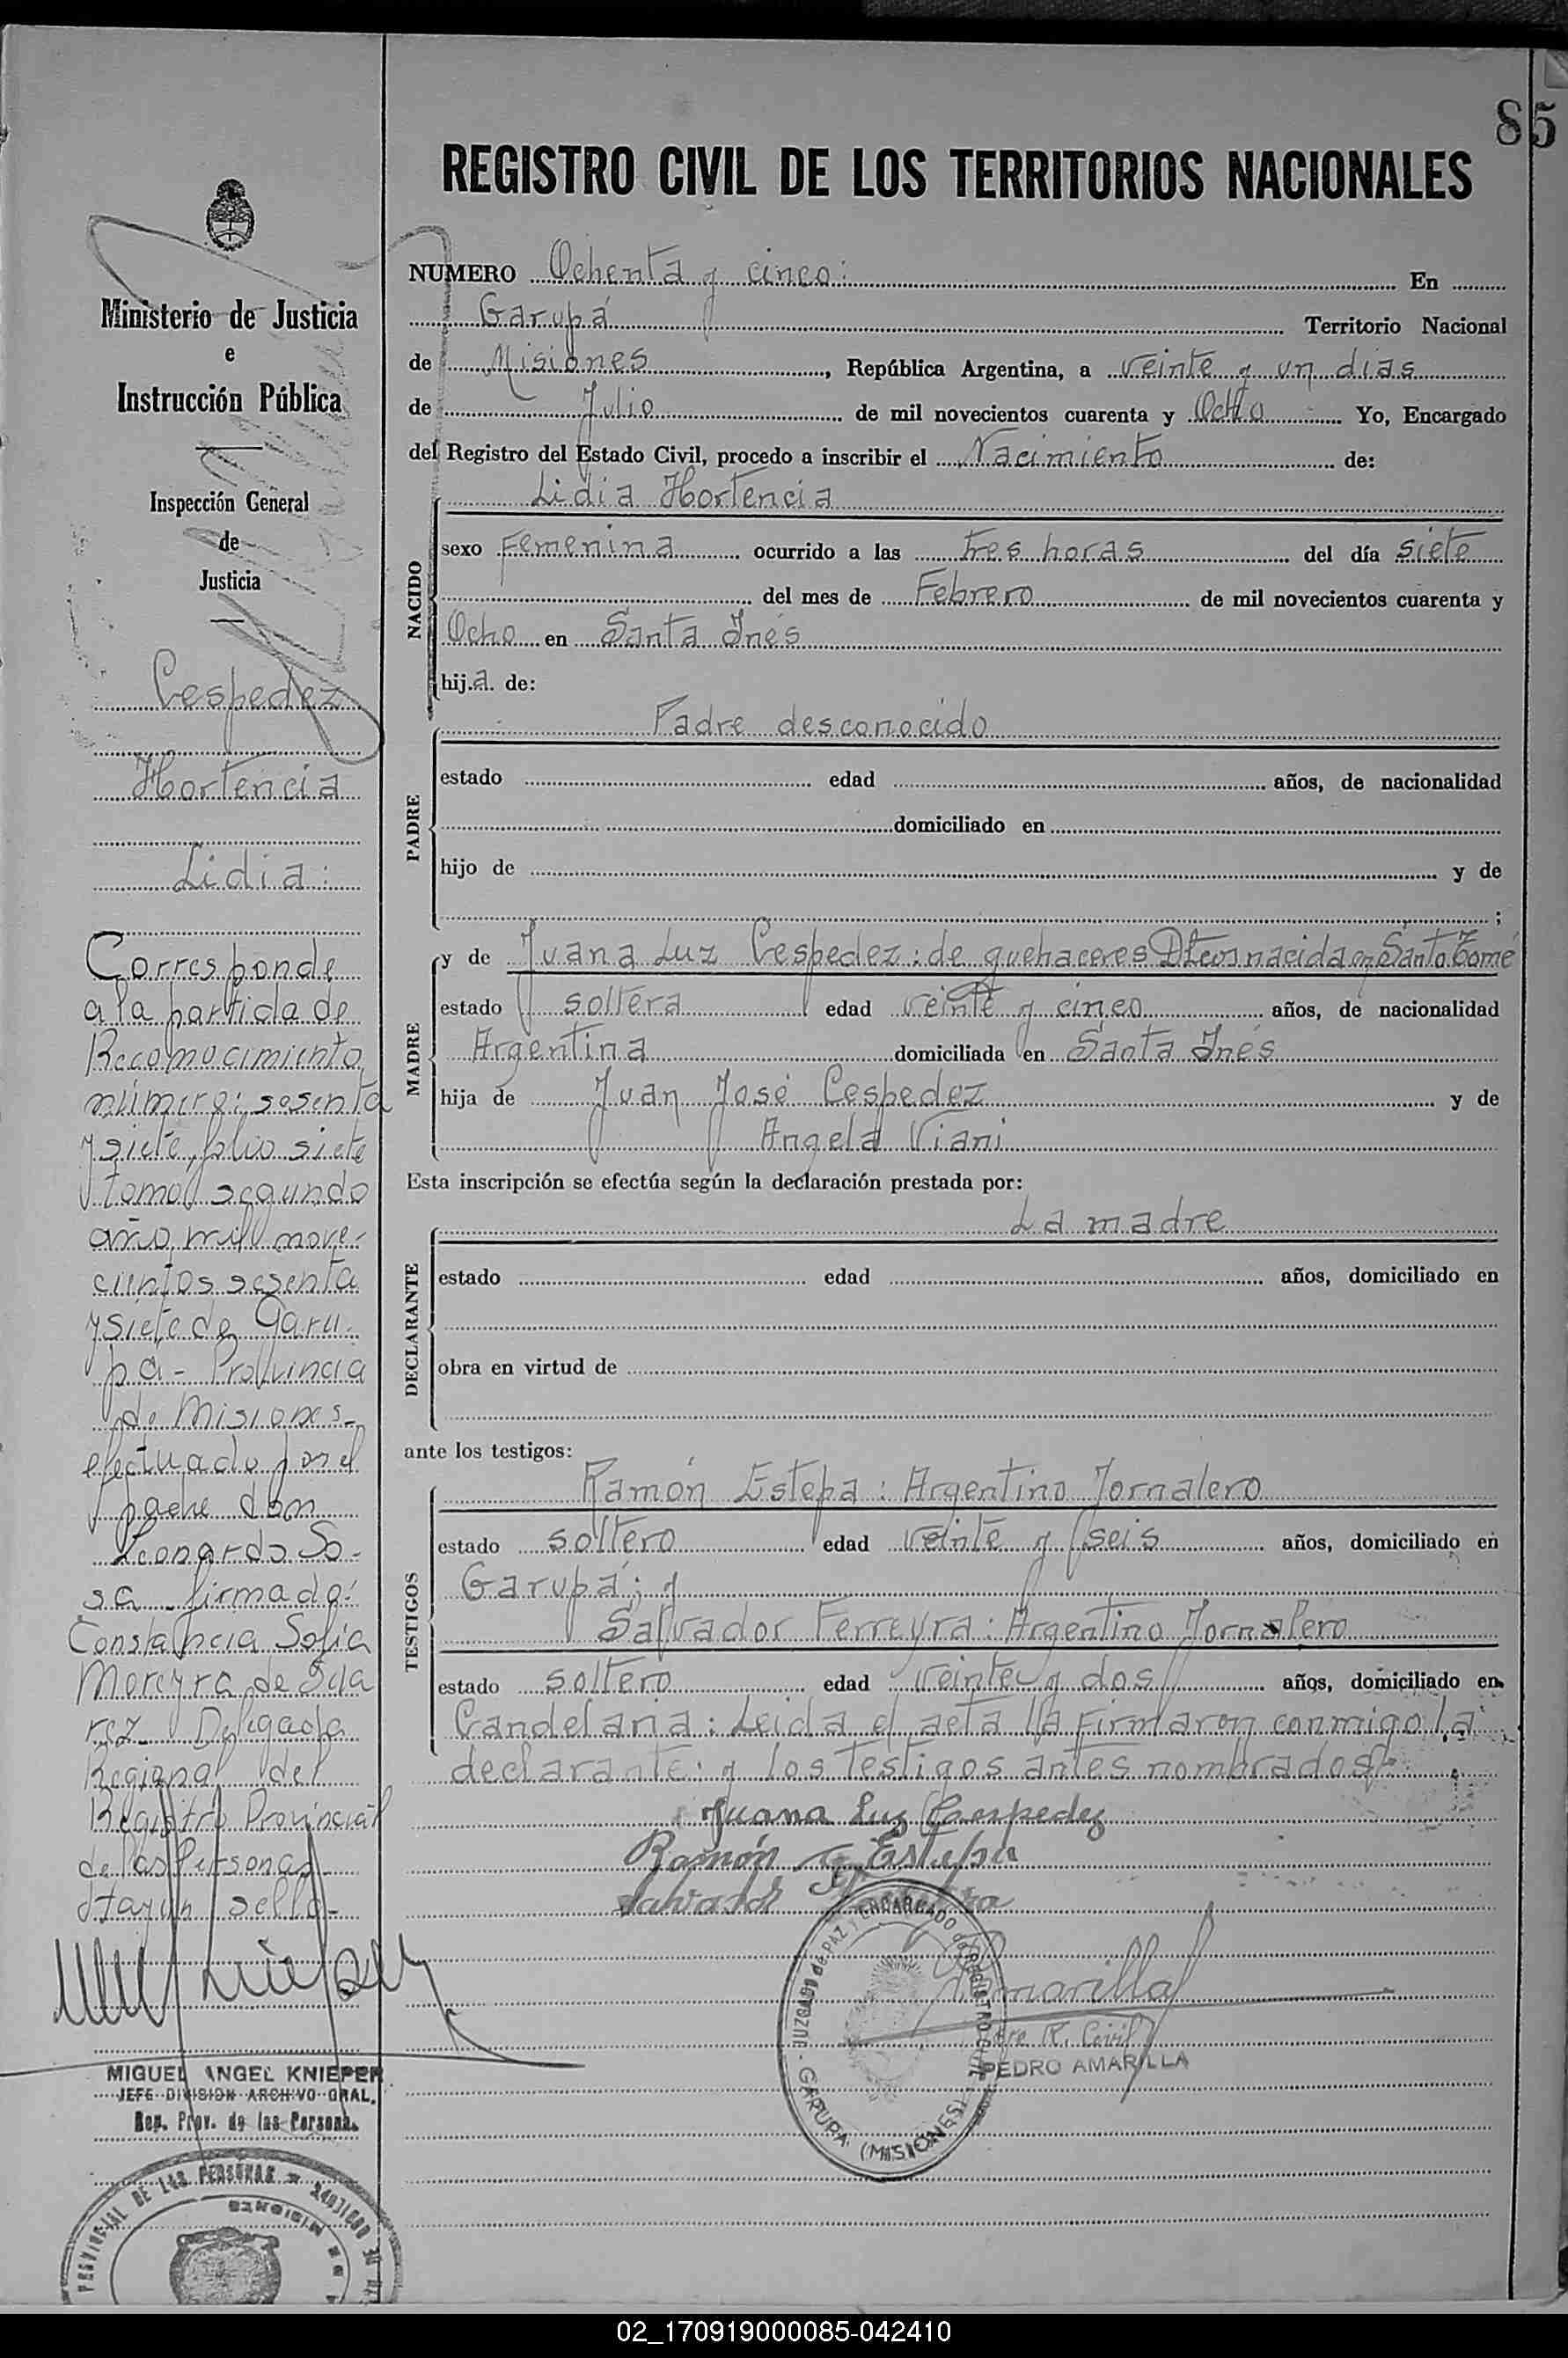 85
REGISTRO CIVIL DE LOS TERRITORIOS NACIONALES
Ministerio de Justicia
e
Instrucción Pública
Inspección General
de
Justicia
Cespedez
Hortencia
Lidia:
Corresponde
a la partida de
Reconocimiento
número: sesenta
y siete, folio siete
tomo segundo
año mil nove-
cientos sesenta
y siete de Garu-
pá - Provincia
de Misiones-
efectuado por el
padre don
Leonardo So-
sa firmado:
Constancia Sofia
Moreyra de Sua
rez Delegada
Regional del
Registro Provincial
de las Personas
Hay un sello-
MIGUEL ANGEL KNIEPER
JEFE DIVISION ARCHIVO GRAL.
Reg. Prov. de las Persona.
PROVINCIAL DE LAS PERSONAS
MISIONES
NUMERO Ochenta y cinco: En
Garupá Territorio Nacional
de Misiones, República Argentina, a veinte y un dias
de Julio de mil novecientos cuarenta y Ocho Yo, Encargado
del Registro del Estado Civil, procedo a inscribir el Nacimiento de:
NACIDO
Lidia Hortencia
sexo Femenina ocurrido a las tres horas del día siete
del mes de Febrero de mil novecientos cuarenta y
Ocho en Santa Inés
hija de:
PADRE
Padre desconocido
estado edad años, de nacionalidad
domiciliado en
hijo de y de
;
MADRE
y de Juana Luz Cespedez: de quehaceres nacida en Santo Tomé
estado soltera edad veinte y cinco años, de nacionalidad
Argentina domiciliada en Santa Inés
hija de Juan José Cespedez y de
Angela Viani
Esta inscripción se efectúa según la declaración prestada por:
DECLARANTE
La madre
estado edad años, domiciliado en
obra en virtud de
ante los testigos:
TESTIGOS
Ramón Estepa: Argentino Jornalero
estado soltero edad veinte y seis años, domiciliado en
Garupá; y
Salvador Ferreyra: Argentino Jornalero
estado soltero edad veinte y dos años, domiciliado en
Candelaria: Leida el acta la Firmaron conmigo la
declarante: y los testigos antes nombrados
Juana Luz Cespedez
Ramón Estepa
Salvador
JUZGADO de PAZ y ENCARGADO del REGISTRO CIVIL
GARUPA (MISIONES)
Amarilla
R. Civil
PEDRO AMARILLA
02_170919000085-042410